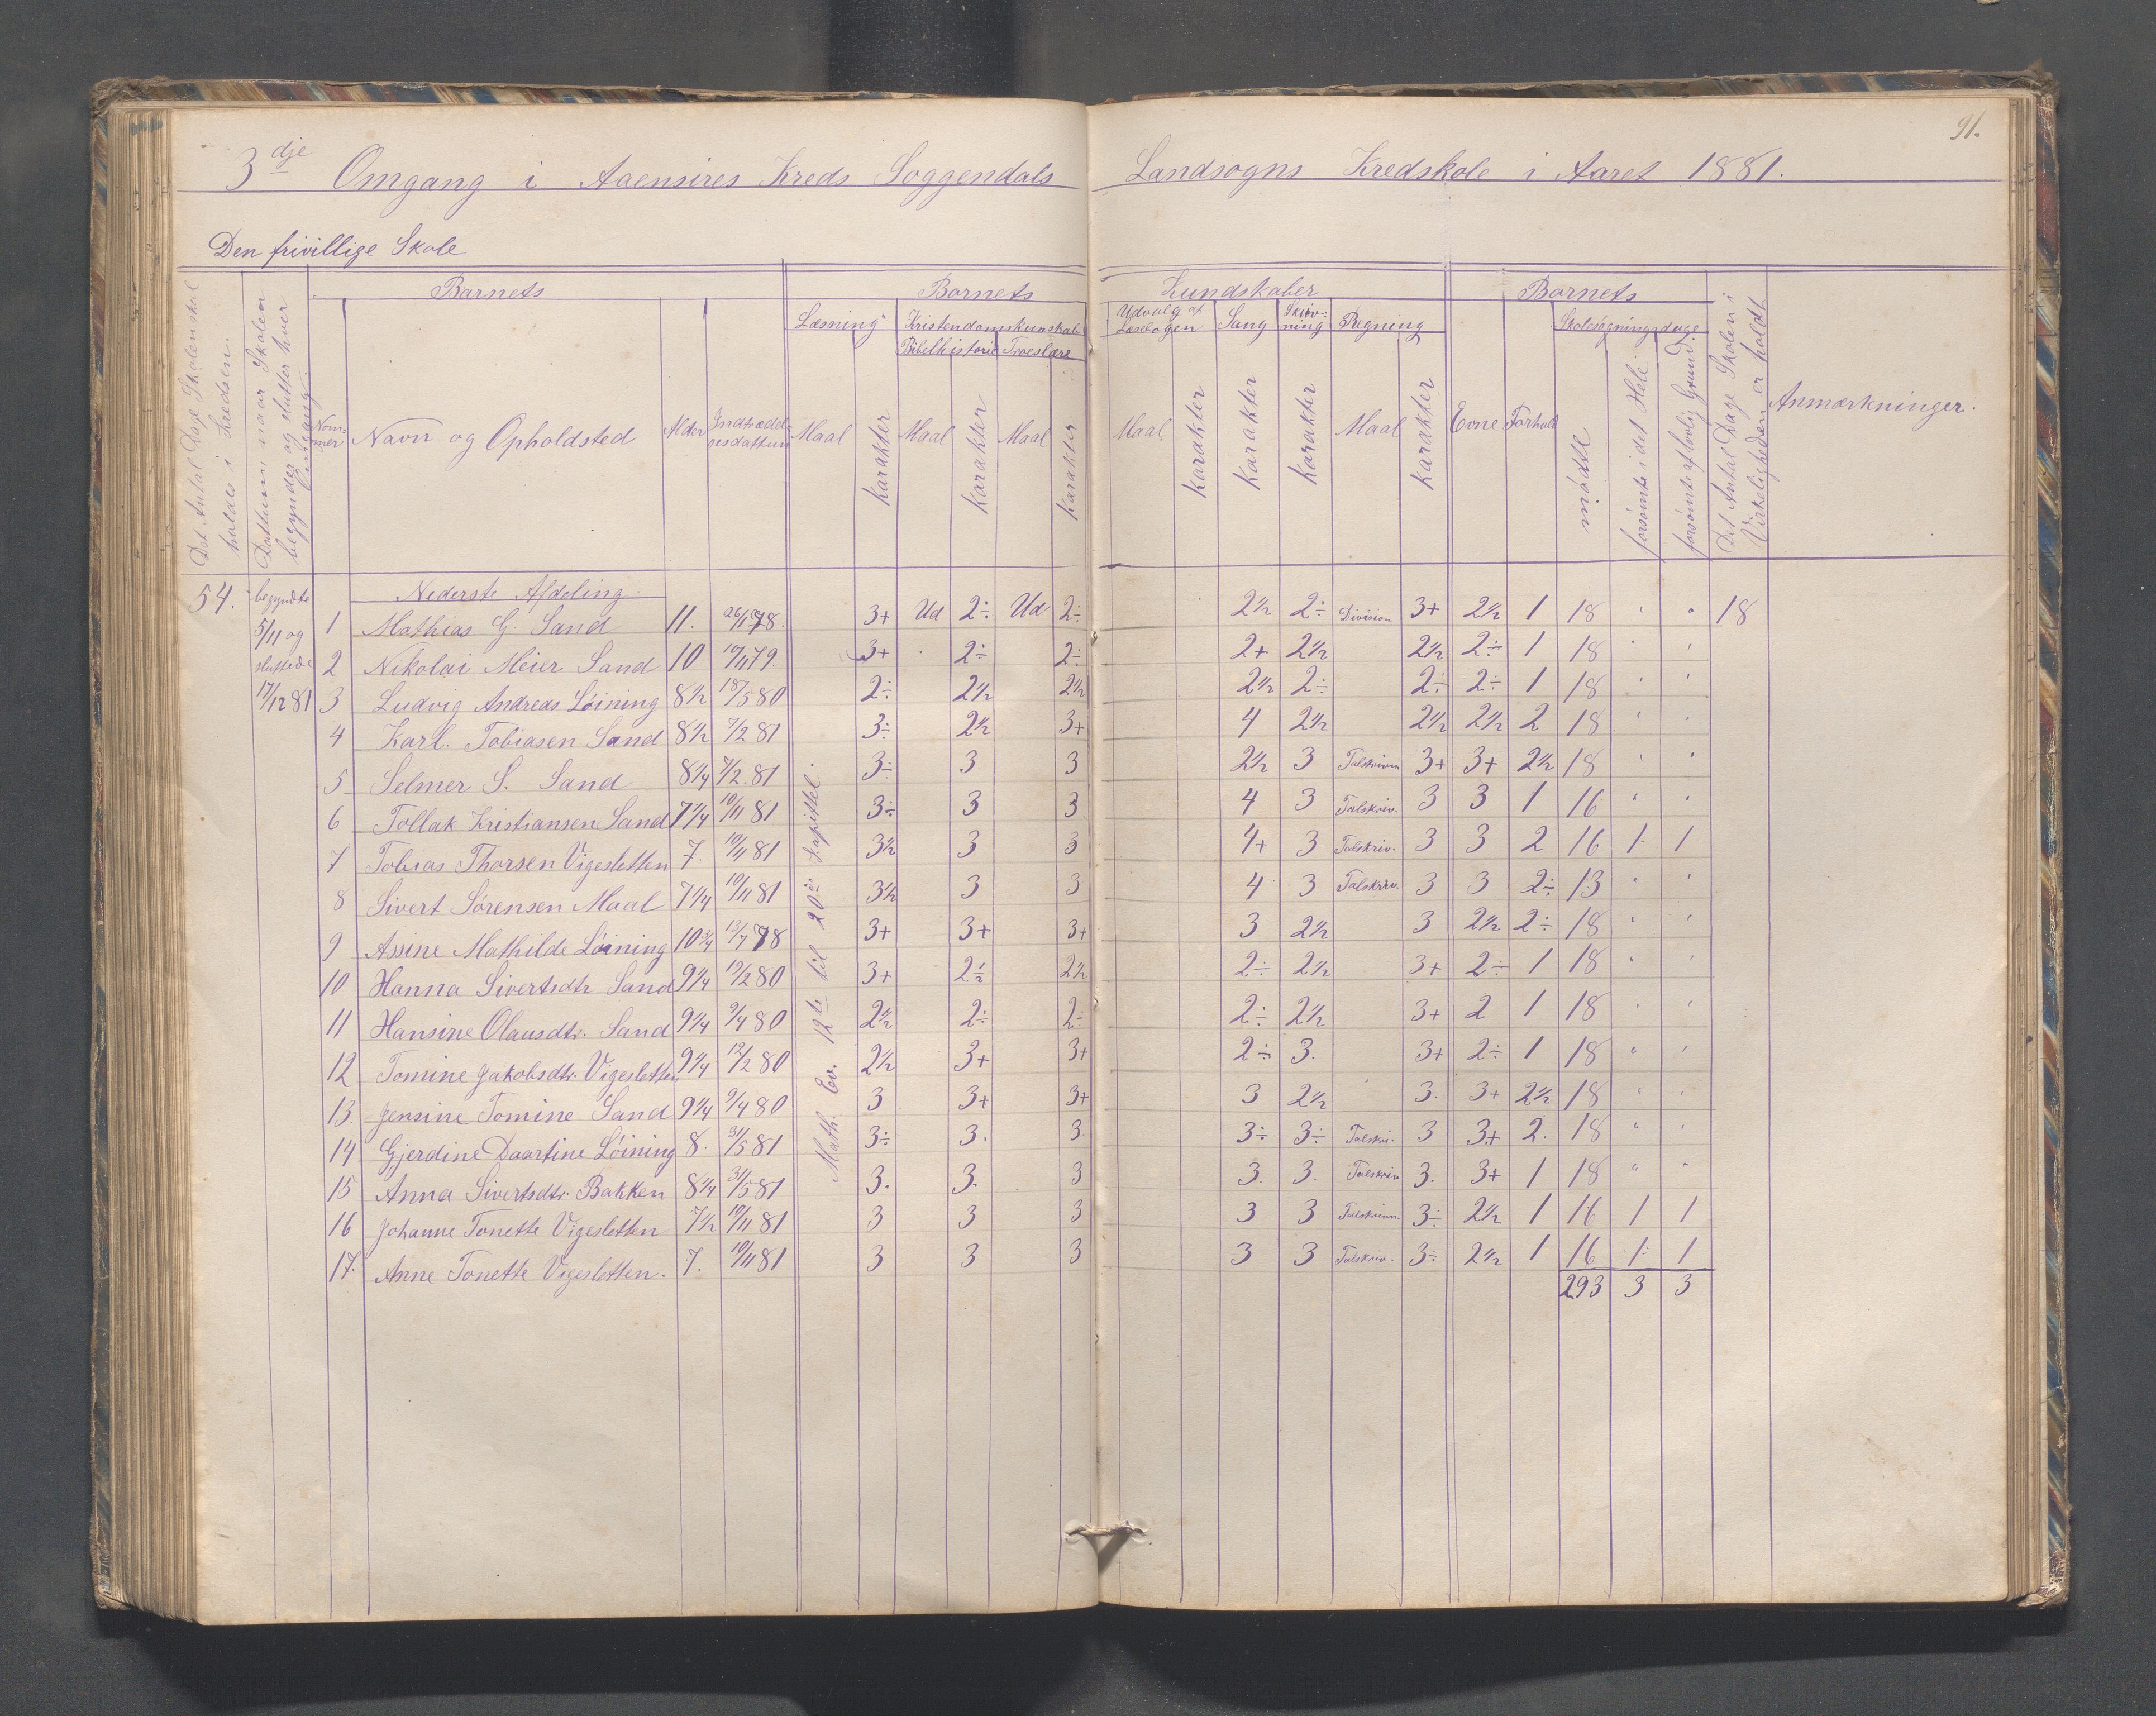 91.
3dje Omgang i Aaensires Kreds Soggendals Landsogns Kredskole i Aaret 1881.
Den frivillige Skole
Det Antal Dage Skolen skal holdes i Kredsen.
Dattum naar Skolen begynder og slutter hver Omgang.
Barnets
Nummer
Navn og Opholdsted
Alder
Indtrædelsesdattum
Barnets Kundskaber
Læsning
Maal
Karakter
Kristendomskunskab
Bibelhistorie
Maal
Karakter
Troeslære
Maal
Karakter
Udvalg af Læsebogen
Maal
Karakter
Sang
Karakter
Skrivning
Karakter
Regning
Maal
Karakter
Barnets
Evne
Forhold
Skolesøgningsdage
mødte
forsømte i det Hele
forsømte af lovlig Grund
Det Antal Dage Skolen i Virkeligheden er holdt
Anmærkninger.
54.
begyndte 5/11 og sluttede 17/12 81
Nederste Afdeling
Math. Ev. 12te til 20de Kapittel.
1 Mathias G. Sand 11. 26/11 78. 3+ Ud 2÷ Ud 2÷ 2½ 2÷ Division 3+ 2½ 1 18 " " 18
2 Nikolai Meier Sand 10 10/11 79. 3+ 2÷ 2÷ 2+ 2½ 2½ 2÷ 1 18 " "
3 Ludvig Andreas Löining 8½ 18/5 80 2÷ 2½ 2½ 2½ 2÷ 2÷ 2÷ 1 18 " "
4 Karl. Tobiasen Sand 8½ 7/2 81 3÷ 2½ 3+ 4 2½ 2½ 2½ 2 18 " "
5 Selmer S. Sand 8¼ 7/2 81 3÷ 3 3 2½ 3 Talskriven 3+ 3+ 2½ 18 " "
6 Tollak Kristiansen Sand 7¼ 10/11 81 3÷ 3 3 4 3 Talskriv. 3 3 1 16 " "
7 Tobias Thorsen Vigesletten 7. 10/11 81 3½ 3 3 4+ 3 Talskriv. 3 3 2 16 1 1
8 Sivert Sörensen Maal 7¼ 10/11 81 3½ 3 3 4 3 Talskriv. 3 3 2÷ 13 " "
9 Assine Mathilde Löining 10¾ 13/7 78 3+ 3+ 3+ 3 2½ 3 2½ 2÷ 18 " "
10 Hanna Sivertsdtr Sand 9¼ 19/2 80 3+ 2½ 2½ 2÷ 2½ 3+ 2÷ 1 18 " "
11 Hansine Olausdtr. Sand 9¼ 9/4 80 2½ 2÷ 2÷ 2÷ 2½ 3+ 2 1 18 " "
12 Tomine Jakobsdtr. Vigesletten 9¼ 12/2 80 2½ 3+ 3+ 2÷ 3. 3+ 2÷ 1 18 " "
13. Jensine Tomine Sand 9¼ 9/4 80 3 3+ 3+ 3 2½ 3. 3+ 2½ 18 " "
14 Gjerdine Daartine Löining 8. 31/5 81 3÷ 3. 3. 3÷ 3÷ Talskri. 3 3+ 2. 18 " "
15 Anna Sivertsdtr. Bakken 8¼ 31/5 81 3. 3. 3 3. 3. Talskriv 3. 3+ 1 18 " "
16 Johanne Tonette Vigesletten 7½ 10/11 81 3 3 3 3 3 Talskriven. 3÷ 2½ 1 16 1 1
17. Anne Tonette Vigesletten. 7. 10/11 81 3 3 3 3 3 Talskriv. 3÷ 2½ 1 16 1 1
293 3 3